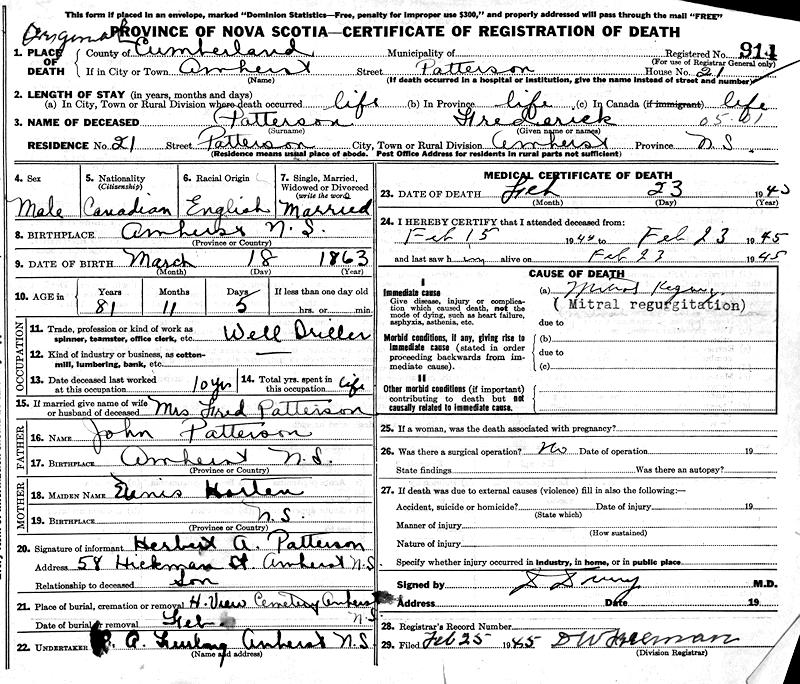 This form if placed in an envelope, marked "Dominion Statistics—Free, penalty for improper use $300," and properly addressed will pass through the mail "FREE"
PROVINCE OF NOVA SCOTIA—CERTIFICATE OF REGISTRATION OF DEATH
1. PLACE OF DEATH
County of Cumberland Municipality of Registered No. 914
(For use of Registrar General only)
If in City or Town Amherst Street Patterson House No. 21
(Name) (If death occurred in a hospital or institution, give the name instead of street and number)
2. LENGTH OF STAY (in years, months and days)
(a) In City, Town or Rural Division where death occurred life (b) In Province life (c) In Canada (if immigrant) life
3. NAME OF DECEASED Patterson Frederick 05-01
(Surname) (Given name or names)
RESIDENCE No. 21 Street Patterson City, Town or Rural Division Amherst Province N.S.
(Residence means usual place of abode. Post Office Address for residents in rural parts not sufficient)
4. Sex
Male
5. Nationality
(Citizenship)
Canadian
6. Racial Origin
English
7. Single, Married, Widowed or Divorced
(write the word)
Married
8. BIRTHPLACE Amherst N.S.
(Province or Country)
9. DATE OF BIRTH March 18 1863
(Month) (Day) (Year)
10. AGE in
Years Months Days If less than one day old
81 11 5 hrs. or min.
OCCUPATION
11. Trade, profession or kind of work as spinner, teamster, office clerk, etc. Well Driller
12. Kind of industry or business, as cotton-mill, lumbering, bank, etc. —
13. Date deceased last worked at this occupation 10 yrs
14. Total yrs. spent in this occupation life
15. If married give name of wife or husband of deceased Mrs. Fred Patterson
FATHER
16. NAME John Patterson
17. BIRTHPLACE Amherst N.S.
(Province or Country)
MOTHER
18. MAIDEN NAME
19. BIRTHPLACE N.S.
(Province or Country)
20. Signature of informant Herbert A. Patterson
Address 58 Hickman St. Amherst N.S
Relationship to deceased Son
21. Place of burial, cremation or removal H. View Cemetery Amherst N.S
Date of burial or removal Feb
22. UNDERTAKER Amherst N.S.
(Name and address)
MEDICAL CERTIFICATE OF DEATH
23. DATE OF DEATH Feb 23 1945
(Month) (Day) (Year)
24. I HEREBY CERTIFY that I attended deceased from:
Feb 15 1944 to Feb 23 1945
and last saw him alive on Feb 23 1945
CAUSE OF DEATH
I
Immediate cause
Give disease, injury or complication which caused death, not the mode of dying, such as heart failure, asphyxia, asthenia, etc.
(a) Mitral Regurg
( Mitral regurgitation)
due to
Morbid conditions, if any, giving rise to immediate cause (stated in order proceeding backwards from immediate cause).
(b)
due to
(c)
II
Other morbid conditions (if important) contributing to death but not causally related to immediate cause.
25. If a woman, was the death associated with pregnancy?
26. Was there a surgical operation? No Date of operation 19
State findings Was there an autopsy?
27. If death was due to external causes (violence) fill in also the following:—
Accident, suicide or homicide? Date of injury 19
(State which)
Manner of injury
(How sustained)
Nature of injury
Specify whether injury occurred in industry, in home, or in public place
Signed by M.D.
Address Date 19
28. Registrar's Record Number
29. Filed Feb 25 1945
(Division Registrar)